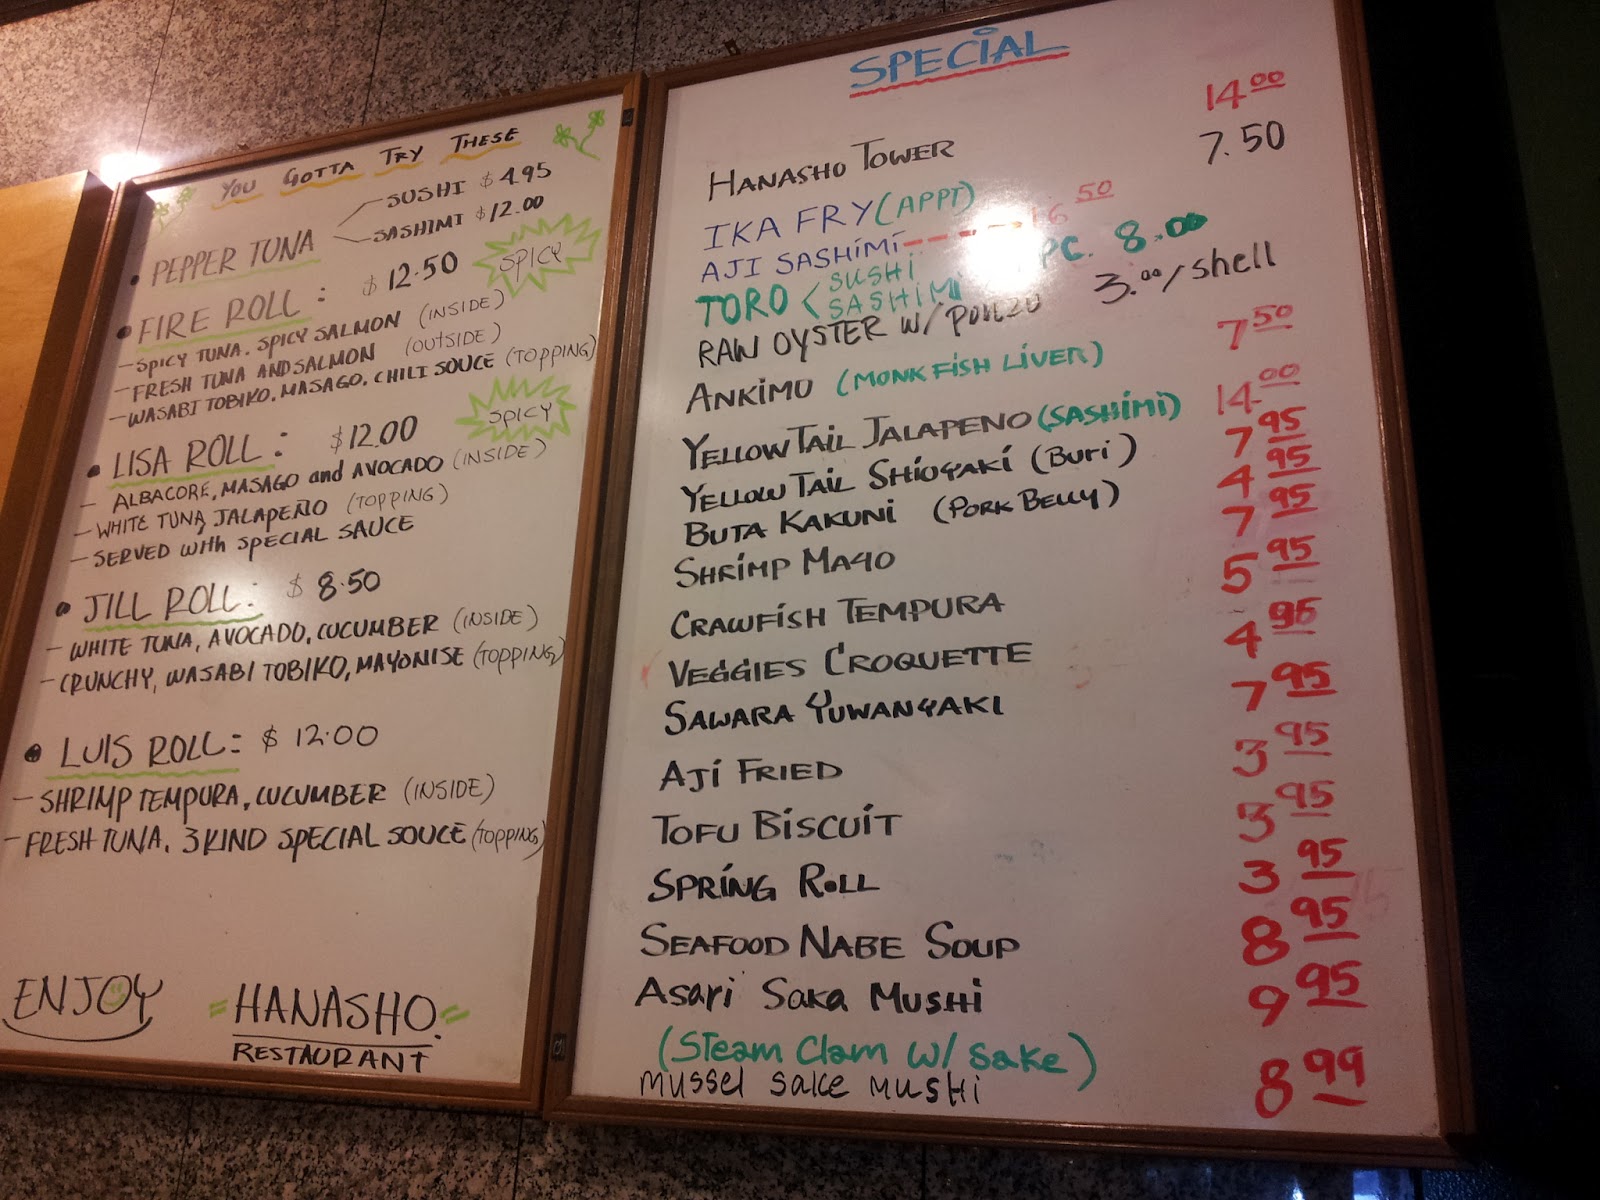 YOU GOTTA TRY THESE
• PEPPER TUNA
SUSHI $4.95
SASHIMI $12.00
• FIRE ROLL: $12.50 SPICY
- SPICY TUNA. SPICY SALMON (INSIDE)
- FRESH TUNA AND SALMON (OUTSIDE)
- WASABI TOBIKO, MASAGO, CHILI SOUCE (TOPPING)
• LISA ROLL: $12.00 SPICY
- ALBACORE, MASAGO and AVOCADO (INSIDE)
- WHITE TUNA, JALAPEÑO (TOPPING)
- SERVED with SPECIAL SAUCE
• JILL ROLL: $8.50
- WHITE TUNA, AVOCADO, CUCUMBER (INSIDE)
- CRUNCHY, WASABI TOBIKO, MAYONISE (TOPPING)
• LUIS ROLL: $12.00
- SHRIMP TEMPURA, CUCUMBER (INSIDE)
- FRESH TUNA, 3 KIND SPECIAL SOUCE (TOPPING)
ENJOY
=HANASHO=
RESTAURANT
SPECIAL
HANASHO TOWER 14.00
IKA FRY (APPT) 7.50
AJI SASHIMI ---- 16 50
TORO < SUSHI
SASHIMI PC. 8.00
RAW OYSTER W/ PONZU 3.00/shell
ANKIMO (MONK FISH LIVER) 7 50
YELLOW TAIL JALAPENO (SASHIMI) 14.00
YELLOW TAIL SHIOYAKI (BURI) 7 95
BUTA KAKUNI (PORK BELLY) 4 95
SHRIMP MAYO 7 95
CRAWFISH TEMPURA 5 95
VEGGIES CROQUETTE 4 95
SAWARA YUWANYAKI 7 95
AJI FRIED 3 95
TOFU BISCUIT 3 95
SPRING ROLL 3 95
SEAFOOD NABE SOUP 8 95
ASARI SAKA MUSHI 9 95
(STEAM CLAM W/ SAKE)
MUSSEL SAKE MUSHI 8 99